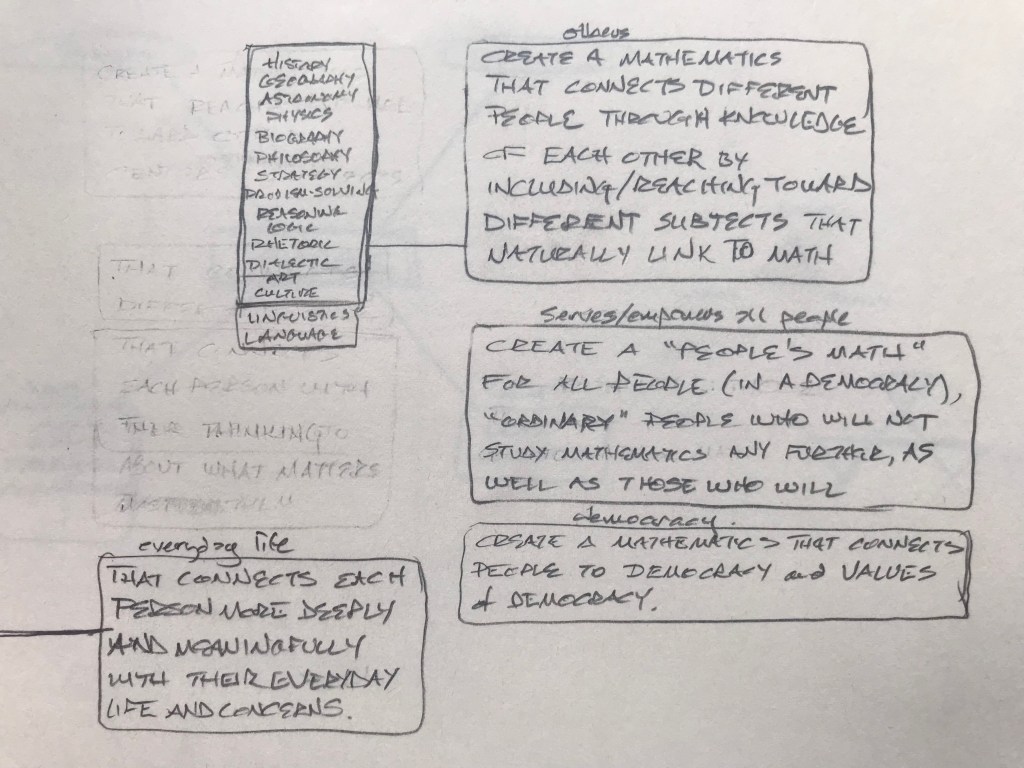 HISTORY
GEOGRAPHY
ASTRONOMY
PHYSICS
BIOGRAPHY
PHILOSOPHY
STRATEGY
PROBLEM-SOLVING
REASONING
LOGIC
RHETORIC
DIALECTIC
ART
CULTURE
LINGUISTICS
LANGUAGE
others
CREATE A MATHEMATICS
THAT CONNECTS DIFFERENT
PEOPLE THROUGH KNOWLEDGE
OF EACH OTHER BY
INCLUDING/REACHING TOWARD
DIFFERENT SUBJECTS THAT
NATURALLY LINK TO MATH
Serves/empowers all people
CREATE A "PEOPLE'S MATH"
FOR ALL PEOPLE (IN A DEMOCRACY),
"ORDINARY" PEOPLE WHO WILL NOT
STUDY MATHEMATICS ANY FURTHER, AS
WELL AS THOSE WHO WILL
democracy.
CREATE A MATHEMATICS THAT CONNECTS
PEOPLE TO DEMOCRACY and VALUES
of DEMOCRACY.
everyday life
THAT CONNECTS EACH
PERSON MORE DEEPLY
AND MEANINGFULLY
WITH THEIR EVERYDAY
LIFE AND CONCERNS.
CREATE A
THAT
THAT
THAT
EACH PERSON WITH
THEIR THINKING
ABOUT WHAT MATTERS